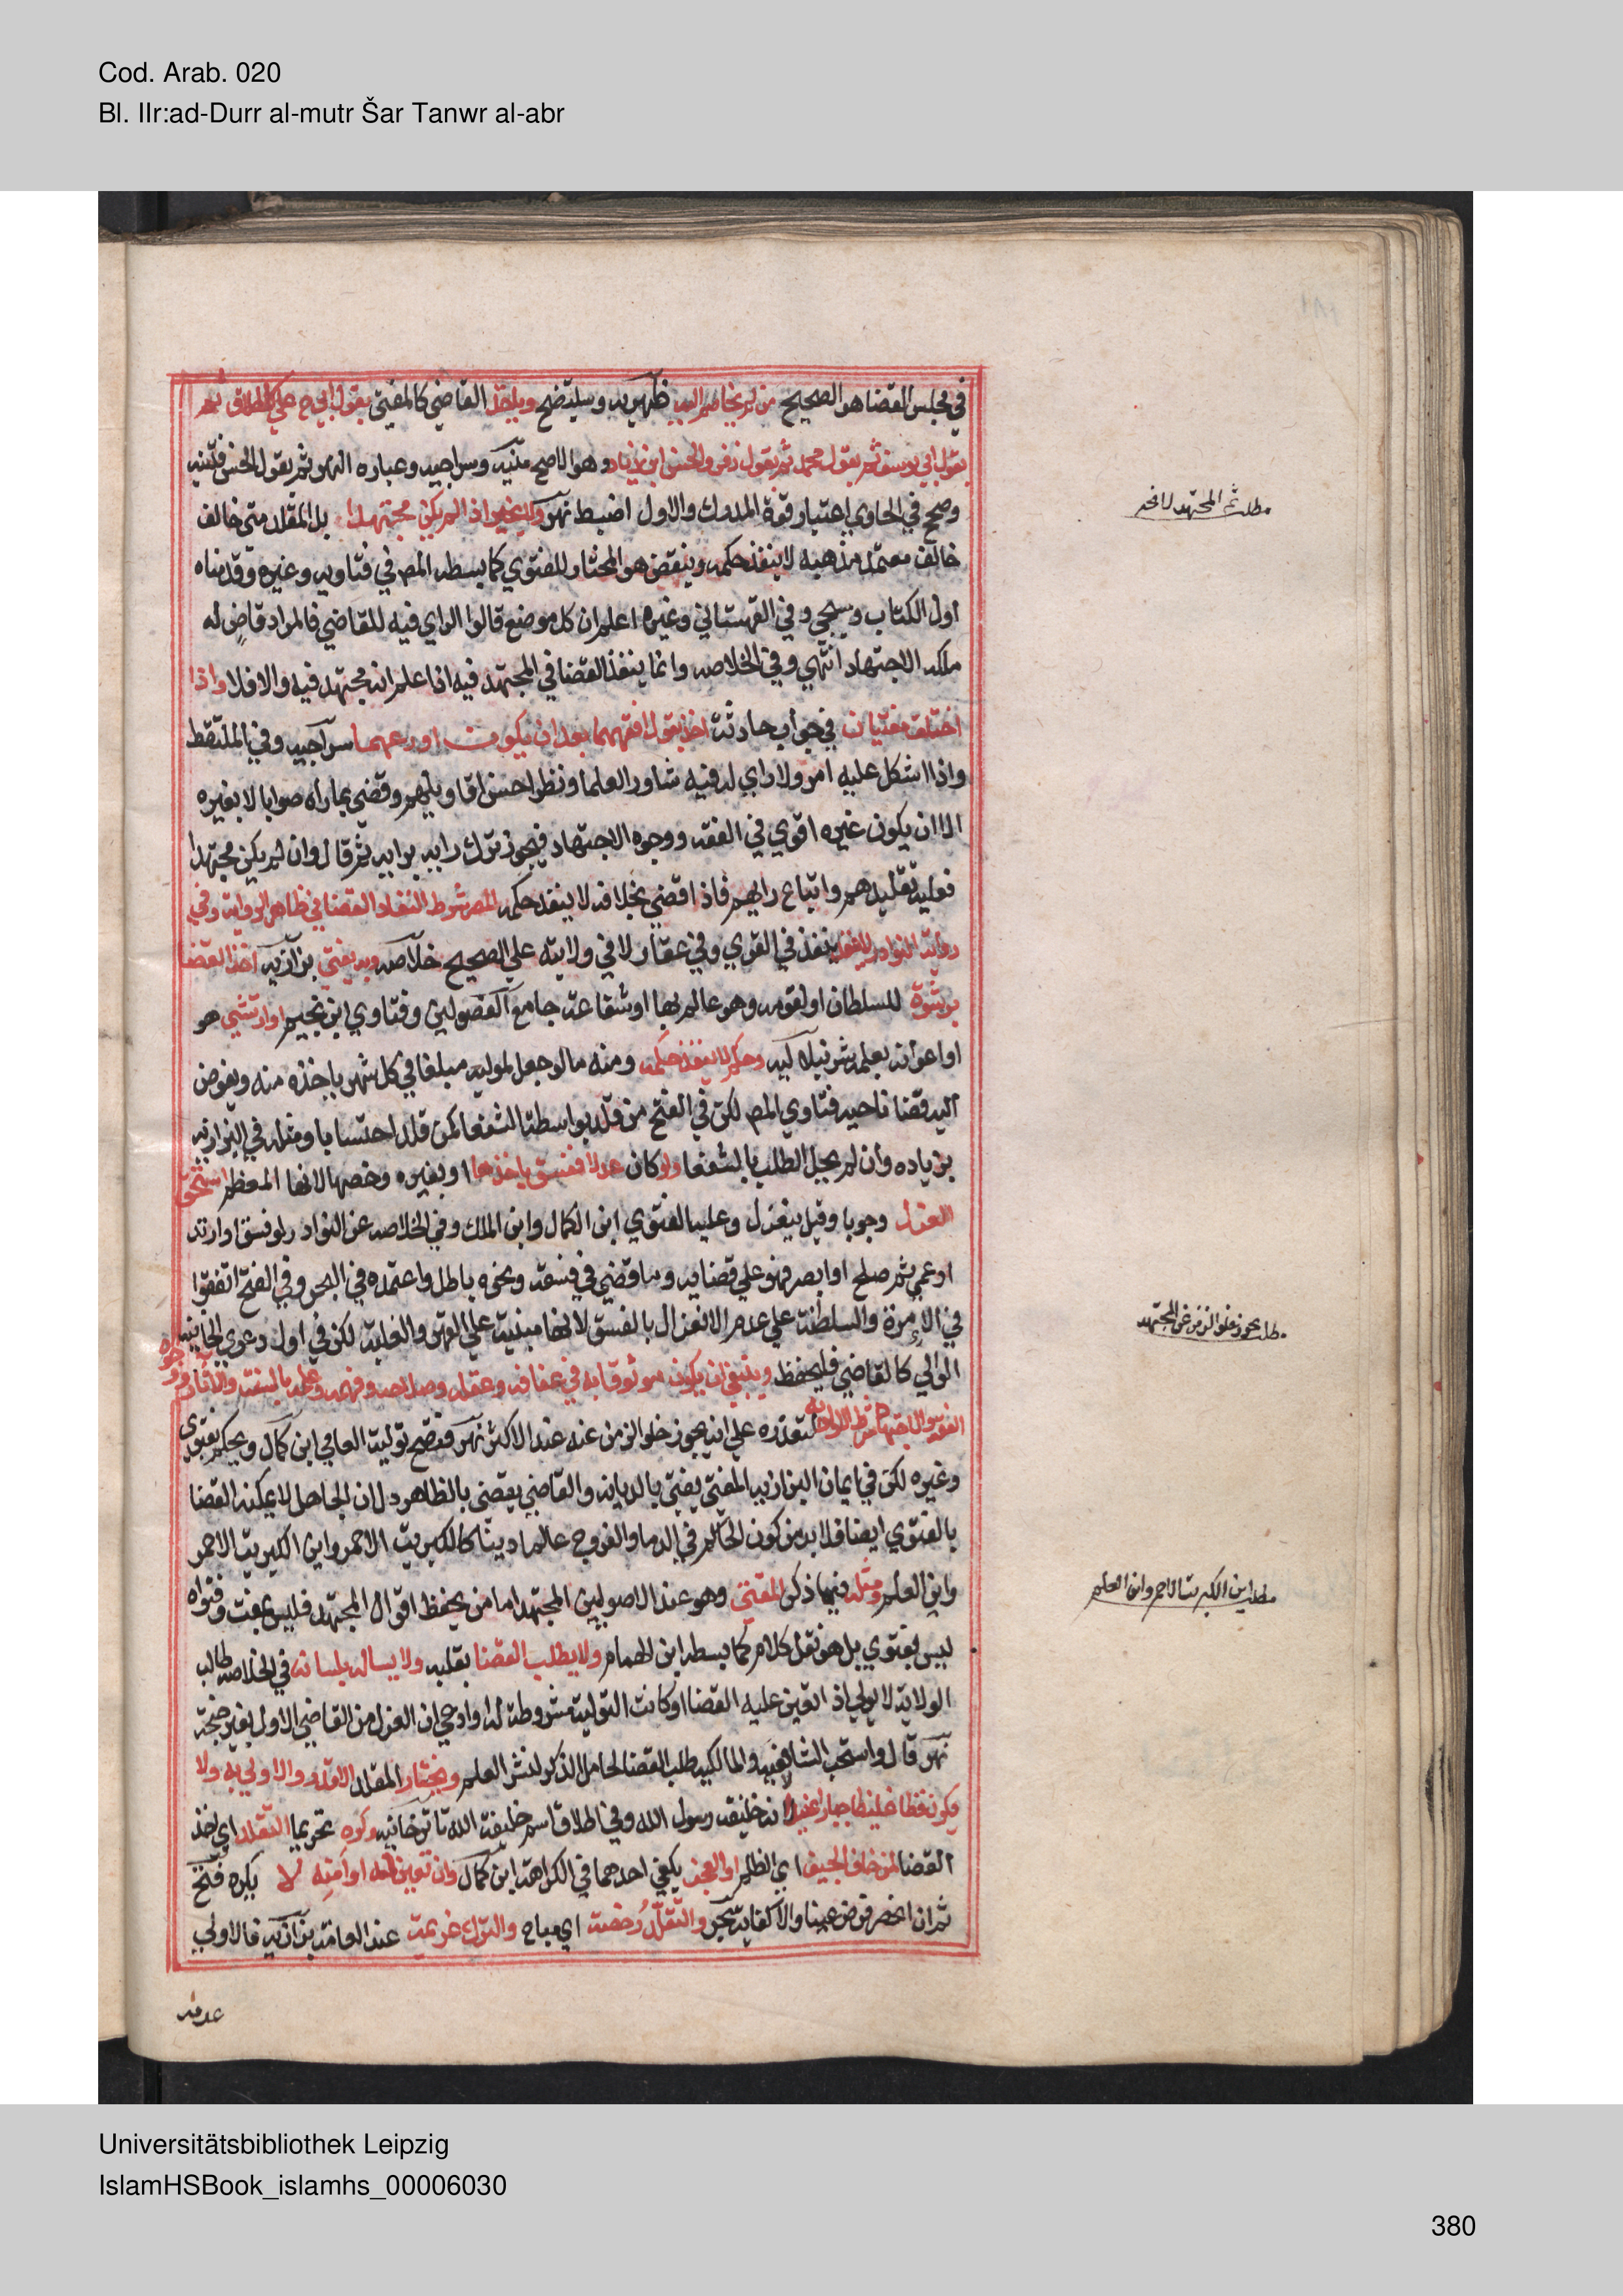 Cod. Arab. 020
Bl. IIr:ad-Durr al-mutr Šar Tanwr al-abr
في مجلس القضا هو الصحيح من لم يخاصم اليه ظهيريه وسيتضح وياخذ القاضي كالمفتي بقول ابي ح علي الاطلاق ثم
بقول ابي يوسف ثم بقول محمد ثم بقول زفر والحسن ابن زياد وهو الاصح منيه وسراجيه وعباره النهر ثم بقول الحسن فتنبه
وصحح في الحاوي اعتبار قوة المدرك والاول اضبط نهر ولا يخير اذا لم يكن مجتهدا بل المقلد متي خالف
خالف معتمد مذهبه لا ينفذ حكمه وينقض هو المختار للفتوي كما بسطه المص في فتاويه وغيره وقدمناه
اول الكتاب وسيجي وفي القهستاني وغيره اعلم ان كل موضع قالوا الراي فيه للقاضي فالمراد قاض له
ملكه الاجتهاد انتهي وفي الخلاصه وانما ينفذ القضا في المجتهد فيه اذا علم انه مجتهد فيه والا فلا واذا
اختلف مفتيان في جواب حادثة اخذ بقول افقههما بعد ان يكون اورعهما سراجيه وفي الملتقط
واذا اشكل عليه امر ولا راي له فيه شاور العلما ونظر احسن اقاويلهم وقضي بما راه صوابا لا بغيره
الا ان يكون غيره اقوي في الفقه ووجوه الاجتهاد فيجوز ترك رايه برايه ثم قال وان لم يكن مجتهدا
فعليه تقليدهم واتباع رايهم فاذا قضي بخلافه لا ينفذ حكمه المصر شرط لنفاذ القضا في ظاهر الرواية وفي
رواية النوادر لا فينفذ في القري وفي عقار لا في ولايته علي الصحيح خلاصه وبه يفتي بزازيه اخذ القضا
برشوة للسلطان او لقومه وهو عالم بها او شفاعة جامع الفصولين وفتاوي ابن نجيم او ارتشي هو
او اعوانه بعلمه شرنبلاليه وحكم لا ينفذ حكمه ومنه ما لو جعل لموليه مبلغا في كل شهر ياخذه منه ويفوض
اليه قضا ناحيه فتاوي المص لكن في الفتح من قلد بواسطة الشفعا كمن قلد احتسابا ومثله في البزازيه
بزياده وان لم يحل الطلب بالشفعا ولو كان عدلا ففسق باخذها او بغيره وخصها لانها المعظم استحق
العزل وجوبا وقيل ينعزل وعليه الفتوي ابن الكمال وابن الملك وفي الخلاصه عن النوادر لو فسق او ارتد
او عمي ثم صلح او ابصر فهو علي قضايه وما قضي في فسقه ونحوه باطل واعتمده في البحر وفي الفتح اتفقوا
في الامرة والسلطنة علي عدم الانعزال بالفسق لانها مبنية علي القهر والغلبة لكن في اول دعوي الخانيه
الوالي كالقاضي فليحفظ وينبغي ان يكون موثوقا به في عفافه وعقله وصلاحه وفهمه وعلمه بالسنة والاثار ووجوه
الفقه والاجتهاد شرط الاولويه لتعذره علي انه يجوز خلو الزمن عنه عند الاكثر نهر فتصح تولية العامي ابن كمال ويحكم بفتوي
وغيره لكن في ايمان البزازيه المفتي يفتي بالديانه والقاضي يقضي بالظاهر دل ان الجاهل لا يمكنه القضا
بالفتوي ايضا فلا بد من كون الحاكم في الدما والفروج عالما دينا كالكبريت الاحمر واين الكبريت الاحمر
واين العلم ومثله فيما ذكر المفتي وهو عند الاصوليين المجتهد اما من يحفظ اقوال المجتهد فليس بمفت وفتواه
ليس بفتوي بل هو نقل كلام كما بسطه ابن الهمام ولا يطلب القضا بقلبه ولا يساله بلسانه في الخلاصه طالب
الولاية لا يولي الا اذا تعين عليه القضا او كانت التولية مشروطة له او ادعي ان العزل من القاضي الاول بغير جنحة
نهر قال واستحب الشافعيه والمالكيه طلب القضا لخامل الذكر لنشر العلم ويختار المقلد الاقدر والاولي به ولا
يكون فظا غليظا جبارا عنيدا لانه خليفة رسول الله وفي اطلاق اسم خليفة الله تاترخانيه وكره تحريما التقلد اي اخذ
القضا لمن خاف الحيف اي الظلم او العجز يكفي احدهما في الكراهة ابن كمال وان تعين له او امنه لا يكره فتح
ثم ان انحصر فرض عينا والا كفاية بحر والتقلد رخصة اي مباح والترك عزيمة عند العامة بزازيه فالاولي
عدمه
مطلب المجتهد لا
مطلب يجوز خلو الزمن عن المجتهد
مطلب اين الكبريت الاحمر واين العلم
Universitätsbibliothek Leipzig
IslamHSBook_islamhs_00006030
380